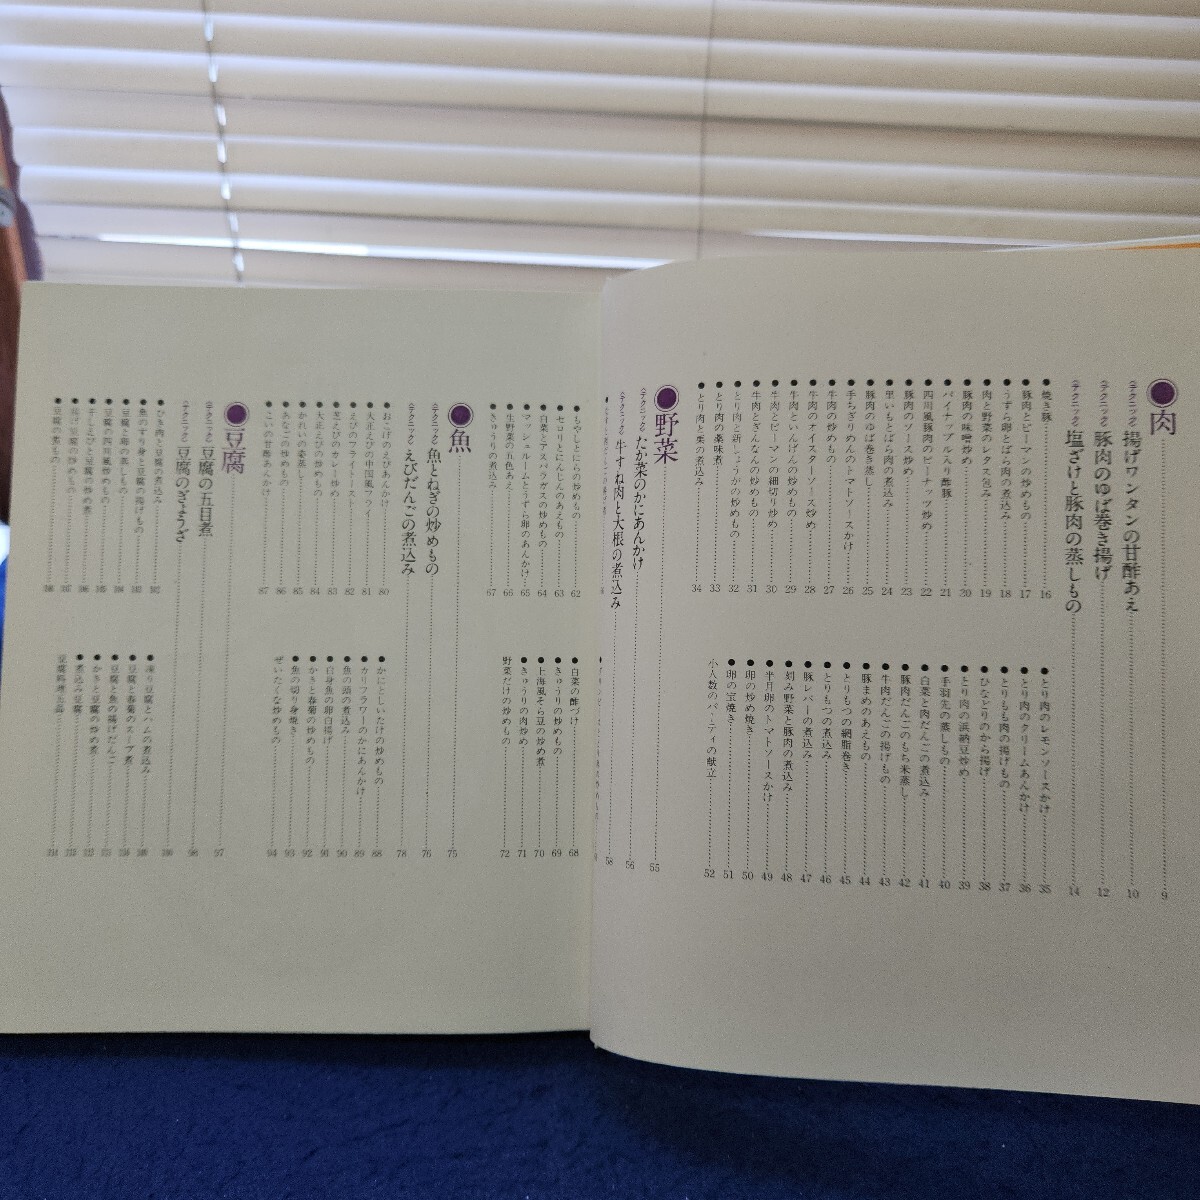 ●肉……9
〈テクニック〉揚げワンタンの甘酢あえ……10
〈テクニック〉豚肉のゆば巻き揚げ……12
〈テクニック〉塩ざけと豚肉の蒸しもの……14
●焼き豚……16
●豚肉とピーマンの炒めもの……17
●うずら卵とばら肉の煮込み……18
●肉と野菜のレタス包み……19
●豚肉の味噌炒め……20
●パイナップル入り酢豚……21
●四川風豚肉のピーナッツ炒め……22
●豚肉のソース炒め……23
●里いもとばら肉の煮込み……24
●豚肉のゆば巻き蒸し……25
●手ちぎりめんのトマトソースかけ……26
●牛肉の炒めもの……27
●牛肉のオイスターソース炒め……28
●牛肉といんげんの炒めもの……29
●牛肉とピーマンの細切り炒め……30
●牛肉とぎんなんの炒めもの……31
●とり肉と新しょうがの炒めもの……32
●とり肉の薬味煮……33
●とり肉と栗の煮込み……34
●とり肉のレモンソースかけ……35
●とり肉のクリームあんかけ……36
●とりもも肉の揚げもの……37
●ひなどりのから揚げ……38
●とり肉の浜納豆炒め……39
●手羽先の蒸しもの……40
●白菜と肉だんごの煮込み……41
●豚肉だんごのもち米蒸し……42
●牛肉だんごの揚げもの……43
●豚まめのあえもの……44
●とりもつの網脂巻き……45
●とりもつの煮込み……46
●豚レバーの煮込み……47
●刻み野菜と豚肉の煮込み……48
●半月卵のトマトソースかけ……49
●卵の炒め焼き……50
●卵の宝焼き……51
小人数のパーティの献立……52
●野菜……55
〈テクニック〉たか菜のかにあんかけ……56
〈テクニック〉牛すね肉と大根の煮込み……58
●もやしとにらの炒めもの……62
●セロリとにんじんのあえもの……63
●白菜とアスパラガスの炒めもの……64
●マッシュルームとうずら卵のあんかけ……65
●生野菜の五色あえ……66
●きゅうりの煮込み……67
●白菜の酢づけ……68
●きゅうりの炒めもの……69
●上海風そら豆の炒め煮……70
●きゅうりの肉炒め……71
野菜だけの炒めもの……72
●魚……75
〈テクニック〉魚とねぎの炒めもの……76
〈テクニック〉えびだんごの煮込み……78
●おこげのえびあんかけ……80
●大正えびの中国風フライ……81
●えびのフライトースト……82
●芝えびのカレー炒め……83
●大正えびの炒めもの……84
●かれいの姿蒸し……85
●あなごの炒めもの……86
●こいの甘酢あんかけ……87
●かにとしいたけの炒めもの……88
●カリフラワーのかにあんかけ……89
●魚の頭の煮込み……90
●白身魚の卵白揚げ……91
●かきと春菊の炒めもの……92
●魚の切り身焼き……93
ぜいたくな炒めもの……94
●豆腐……97
〈テクニック〉豆腐の五目煮……98
〈テクニック〉豆腐のぎょうざ……100
●ひき肉と豆腐の煮込み……102
●魚のすり身と豆腐の揚げもの……103
●豆腐と卵の蒸しもの……104
●豆腐の四川風炒めもの……105
●干しえびと豆腐の炒め煮……106
●揚げ豆腐の炒めもの……107
●豆腐の煮もの……108
●凍り豆腐とハムの煮込み……109
●豆腐と春菊のスープ煮
●豆腐と魚の揚げだんご
●かきと豆腐の炒め煮
●煮込み豆腐
豆腐料理五品